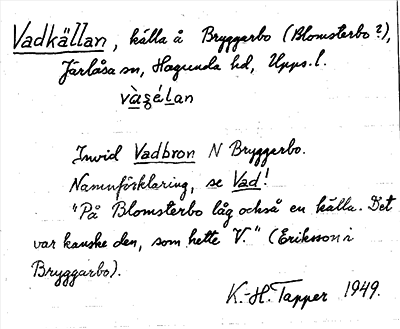 Vadkällan, källa å Bryggarbo (Blomsterbo?),
Järlåsa sn, Hagunda hd, Upps. l.
vàʂélan
Invid Vadbron N Bryggarbo.
Namnförklaring, se Vad!
"På Blomsterbo låg också en källa. Det
var kanske den, som hette V." (Eriksson i
Bryggarbo).
K.-H. Tapper 1949.